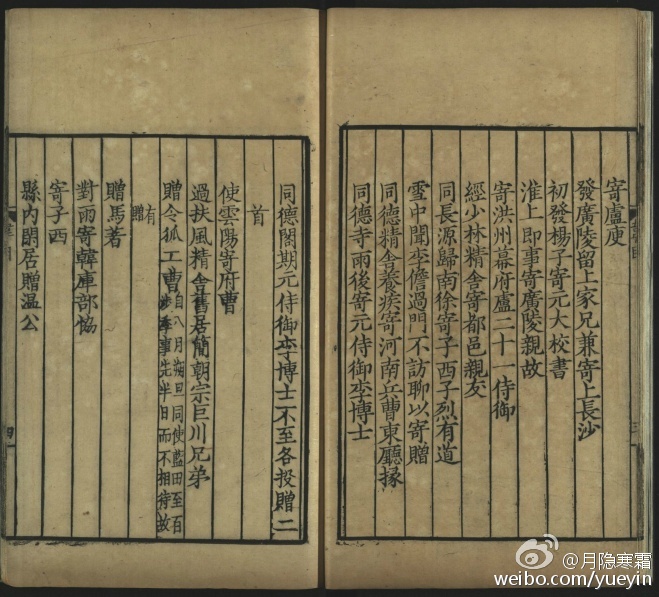 寄盧庾
發廣陵留上家兄兼寄上長沙
初發楊子寄元大校書
淮上即事寄廣陵親故
寄洪州幕府盧二十一侍御
經少林精舍寄都邑親友
同長源歸南徐寄子西子烈有道
雪中聞李儋過門不訪聊以寄贈
同德精舍養疾寄河南兵曹東廳掾
同德寺雨後寄元侍御李博士
同德閣期元侍御李博士不至各投贈二
首
使雲陽寄府曹
過扶風精舍舊居簡朝宗巨川兄弟
贈令狐工曹自八月朔旦同使藍田至百
涉季事先半日而不相待故
有
贈
贈馮著
對雨寄韓庫部協
寄子西
縣內閑居贈温公
四
@月隐寒霜
weibo.com/yueyin